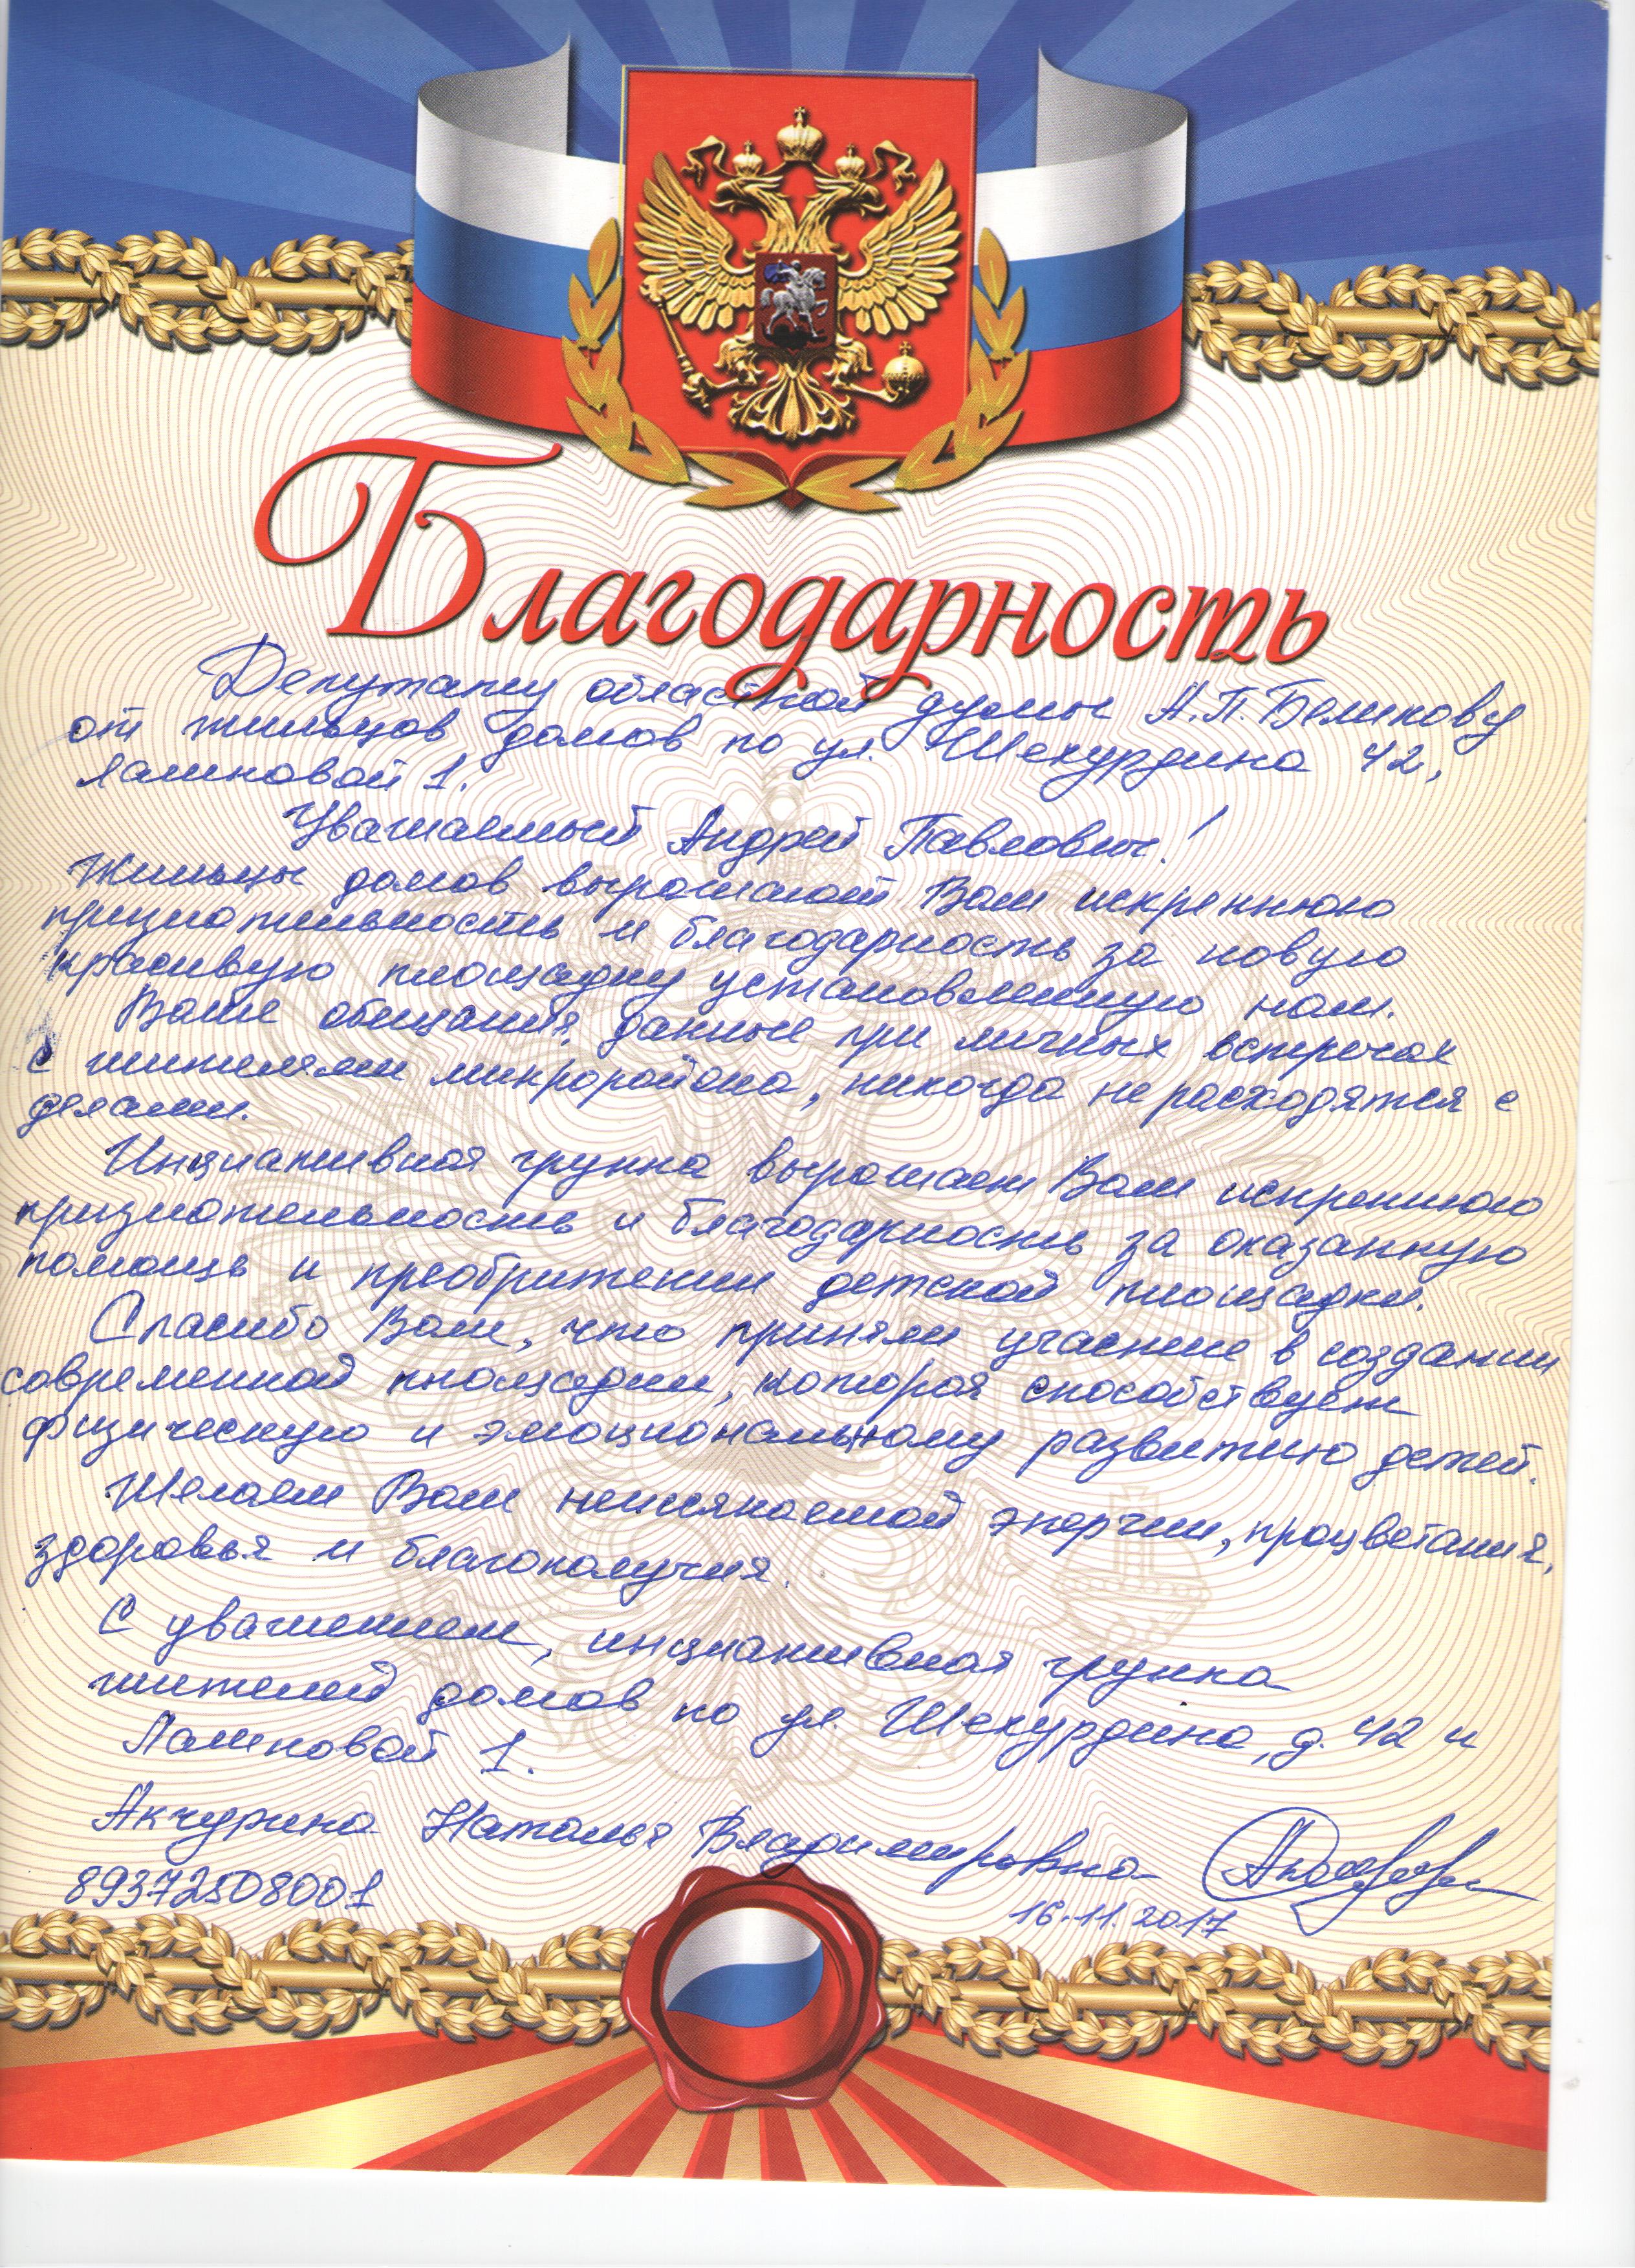 Благодарность
Депутату областной думы А.П. Беликову
от жильцов домов по ул. Шехурдина 42,
Лашковой 1.
Уважаемый Андрей Павлович!
Жильцы домов выражают Вам искреннюю
признательность и благодарность за новую
красивую площадку установленную нам.
Ваши обещания, данные при личных встречах
с жителями микрорайона, никогда не расходятся с
делами.
Инициативная группа выражает Вам искреннюю
признательность и благодарность за оказанную
помощь и преобритении детской площадки.
Спасибо Вам, что приняли участие в создании
современной площадки, которая способствует
физическую и эмоциональному развитию детей.
Желаем Вам неиссякаемой энергии, процветания,
здоровья и благополучия.
С уважением, инициативная группа
жителей домов по ул. Шехурдина, д. 42 и
Лашковой 1.
Акчурина Наталья Владимировна
89372508001
16.11.2017